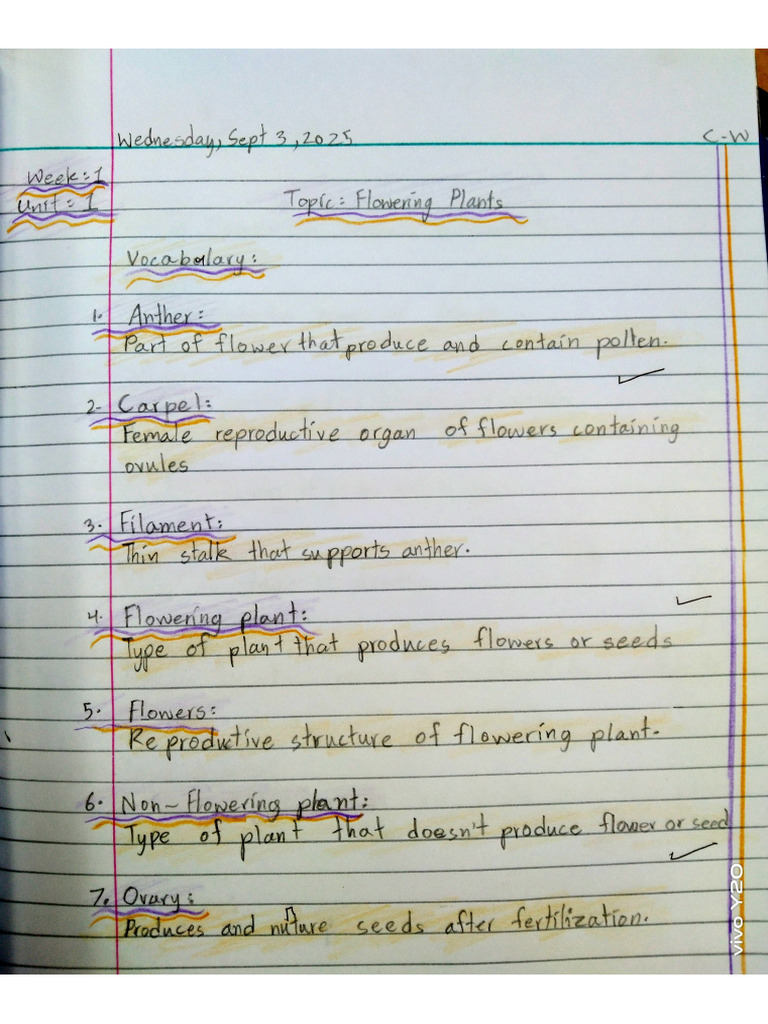 Wednesday, Sept 3, 2025 C-W
Week: 1
Unit: 1 Topic: Flowering Plants
Vocabalary:
1. Anther:
Part of flower that produce and contain pollen.
2- Carpel:
Female reproductive organ of flowers containing
ovules
3. Filament:
Thin stalk that supports anther.
4. Flowering plant:
Type of plant that produces flowers or seeds
5. Flowers:
Reproductive structure of flowering plant.
6. Non-flowering plant:
Type of plant that doesn't produce flower or seed
7. Ovary:
Produces and nuture seeds after fertilization.
vivo Y20